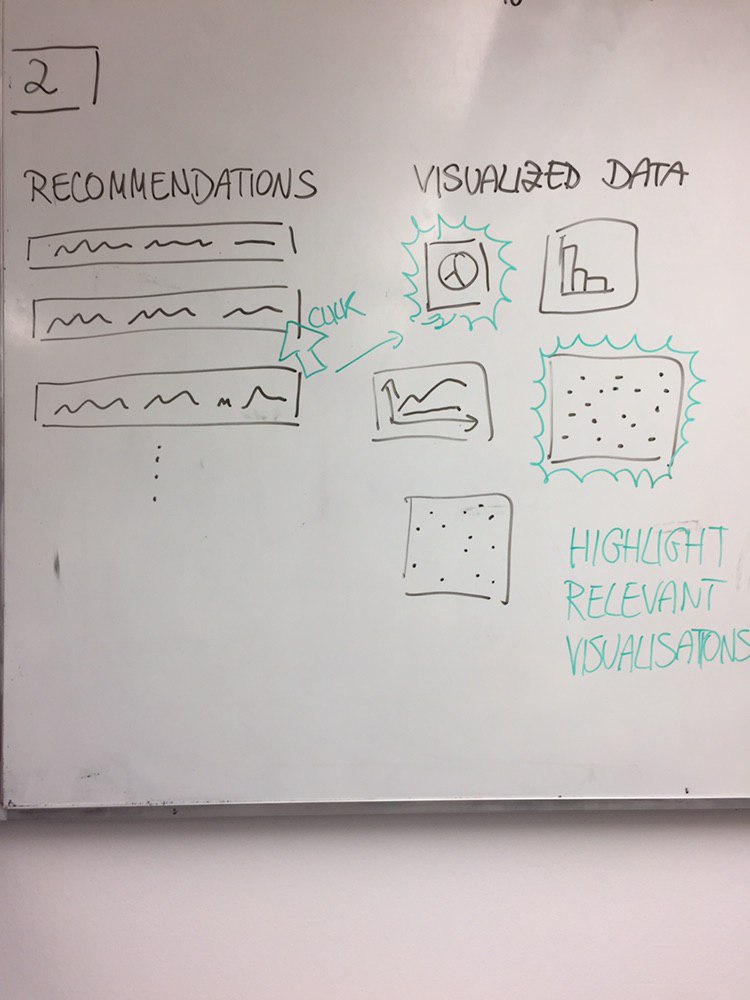 2
RECOMMENDATIONS
VISUALIZED DATA
CLICK
HIGHLIGHT
RELEVANT
VISUALISATIONS